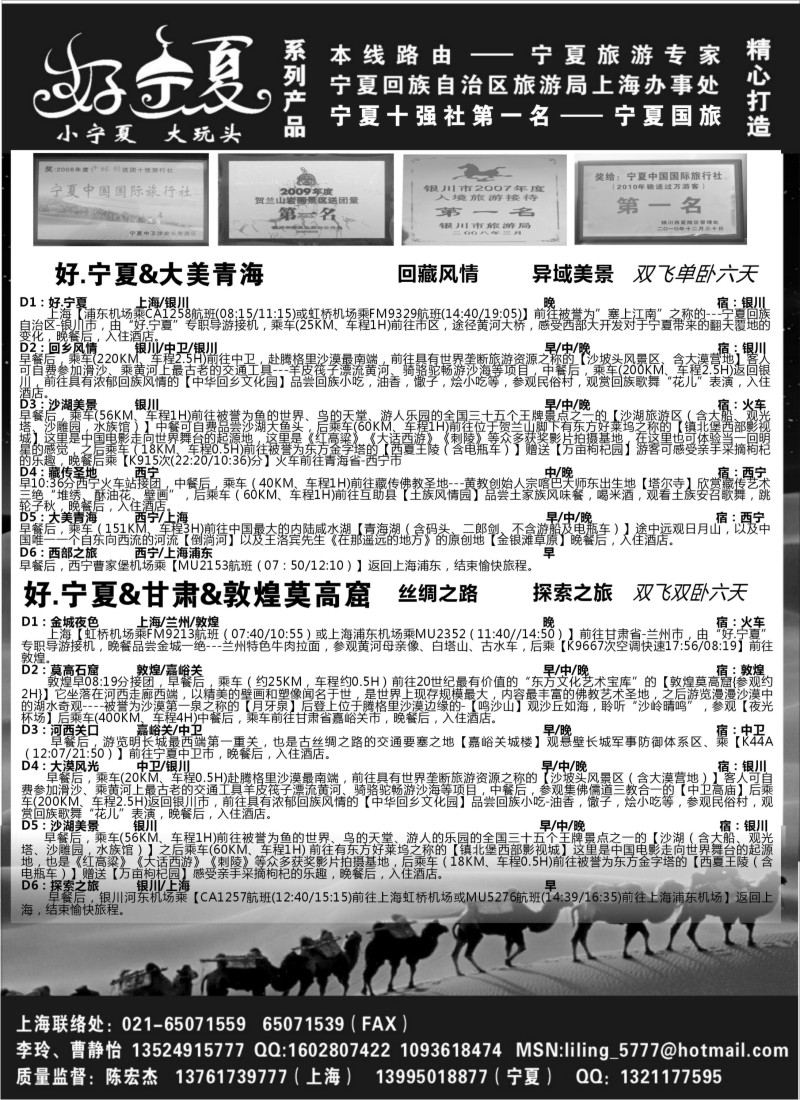 好宁夏
小宁夏 大玩头
系列产品
本线路由 —— 宁夏旅游专家
宁夏回族自治区旅游局上海办事处
宁夏十强社第一名——宁夏国旅
精心打造
宁夏中国国际旅行社
2009年度
贺兰山岩画景区送团量
第一名
银川市2007年度
入境旅游接待
第一名
银川市旅游局
二〇〇八年三月
奖给：宁夏中国国际旅行社
（2010年输送过万游客）
第一名
好.宁夏&大美青海 回藏风情 异域美景 双飞单卧六天
D1：好.宁夏 上海/银川 晚 宿：银川
上海【浦东机场乘CA1258航班(08:15/11:15)或虹桥机场乘FM9329航班(14:40/19:05)】前往被誉为“塞上江南”之称的---宁夏回族
自治区-银川市，由“好.宁夏”专职导游接机，乘车(25KM、车程1H)前往市区，途径黄河大桥，感受西部大开发对于宁夏带来的翻天覆地的
变化，晚餐后，入住酒店。
D2：回乡风情 银川/中卫/银川 早/中/晚 宿：银川
早餐后，乘车(220KM、车程2.5H)前往中卫，赴腾格里沙漠最南端，前往具有世界垄断旅游资源之称的【沙坡头风景区、含大漠营地】客人
可自费参加滑沙、乘黄河上最古老的交通工具---羊皮筏子漂流黄河、骑骆驼畅游沙海等项目，中餐后，乘车(200KM、车程2.5H)返回银
川，前往具有浓郁回族风情的【中华回乡文化园】品尝回族小吃，油香，馓子，烩小吃等，参观民俗村，观赏回族歌舞“花儿”表演，入住
酒店。
D3：沙湖美景 银川 早/中/晚 宿：火车
早餐后，乘车(56KM、车程1H)前往被誉为鱼的世界、鸟的天堂、游人乐园的全国三十五个王牌景点之一的【沙湖旅游区（含大船、观光
塔、沙雕园，水族馆）】中餐可自费品尝沙湖大鱼头，后乘车(60KM、车程1H)前往位于贺兰山脚下有东方好莱坞之称的【镇北堡西部影视
城】这里是中国电影走向世界舞台的起源地，这里是《红高粱》《大话西游》《刺陵》等众多获奖影片拍摄基地，在这里也可体验当一回明
星的感觉，之后乘车（18KM、车程0.5H)前往被誉为东方金字塔的【西夏王陵（含电瓶车）】赠送【万亩枸杞园】游客可感受亲手采摘枸杞
的乐趣，晚餐后乘【K915次(22:20/10:36)分】火车前往青海省-西宁市
D4：藏传圣地 西宁 中/晚 宿：西宁
早10:36分西宁火车站接团，中餐后，乘车（40KM、车程1H)前往藏传佛教圣地---黄教创始人宗喀巴大师东出生地【塔尔寺】欣赏藏传艺术
三绝“堆绣、酥油花、壁画”，后乘车（60KM、车程1H)前往互助县【土族风情园】品尝土家族风味餐，喝米酒，观看土族安召歌舞，跳
轮子秋，晚餐后，入住酒店。
D5：大美青海 西宁/上海 早/中/晚 宿：西宁
早餐后，乘车（151KM、车程3H)前往中国最大的内陆咸水湖【青海湖（含码头、二郎剑、不含游船及电瓶车）】途中远观日月山，以及中
国唯一一个自东向西流的河流【倒淌河】以及王洛宾先生《在那遥远的地方》的原创地【金银滩草原】晚餐后，入住酒店。
D6：西部之旅 西宁/上海浦东 早
早餐后，西宁曹家堡机场乘【MU2153航班（07：50/12:10)】返回上海浦东，结束愉快旅程。
好.宁夏&甘肃&敦煌莫高窟 丝绸之路 探索之旅 双飞双卧六天
D1：金城夜色 上海/兰州/敦煌 晚 宿：火车
上海【虹桥机场乘FM9213航班（07:40/10:55）或上海浦东机场乘MU2352（11:40//14:50）】前往甘肃省-兰州市，由“好.宁夏”
专职导游接机，晚餐品尝金城一绝---兰州特色牛肉拉面，参观黄河母亲像、白塔山、古水车，后乘【K9667次空调快速17:56/08:19】前往
敦煌。
D2：莫高石窟 敦煌/嘉峪关 早/中/晚 宿：敦煌
敦煌早08:19分接团，早餐后，乘车（约25KM，车程约0.5H）前往20世纪最有价值的“东方文化艺术宝库”的【敦煌莫高窟(参观约
2H)】它坐落在河西走廊西端，以精美的壁画和塑像闻名于世，是世界上现存规模最大，内容最丰富的佛教艺术圣地，之后游览漫漫沙漠中
的湖水奇观----被誉为沙漠第一泉之称的【月牙泉】后登上位于腾格里沙漠边缘的-【鸣沙山】观沙丘如海，聆听“沙岭晴鸣”，参观【夜光
杯场】后乘车(400KM、车程4H)中餐后，乘车前往甘肃省嘉峪关市，晚餐后，入住酒店。
D3：河西关口 嘉峪关/中卫 早/晚 宿：中卫
早餐后，游览明长城最西端第一重关，也是古丝绸之路的交通要塞之地【嘉峪关城楼】观悬壁长城军事防御体系区、乘【K44A
（12:07/21:50)】前往宁夏中卫市，晚餐后，入住酒店。
D4：大漠风光 中卫/银川 早/中/晚 宿：银川
早餐后，乘车(20KM、车程0.5H)赴腾格里沙漠最南端，前往具有世界垄断旅游资源之称的【沙坡头风景区（含大漠营地）】客人可自
费参加滑沙、乘黄河上最古老的交通工具羊皮筏子漂流黄河、骑骆驼畅游沙海等项目，中餐后，参观集佛儒道三教合一的【中卫高庙】后乘
车(200KM、车程2.5H)返回银川市，前往具有浓郁回族风情的【中华回乡文化园】品尝回族小吃-油香，馓子，烩小吃等，参观民俗村，观
赏回族歌舞“花儿”表演，晚餐后，入住酒店。
D5：沙湖美景 银川 早/中/晚 宿：银川
早餐后，乘车(56KM、车程1H)前往被誉为鱼的世界、鸟的天堂、游人的乐园的全国三十五个王牌景点之一的【沙湖（含大船、观光
塔、沙雕园、水族馆）】之后乘车(60KM、车程1H) 前往有东方好莱坞之称的【镇北堡西部影视城】这里是中国电影走向世界舞台的起源
地，也是《红高粱》《大话西游》《刺陵》等众多获奖影片拍摄基地，后乘车（18KM、车程0.5H)前往被誉为东方金字塔的【西夏王陵（含
电瓶车）】赠送【万亩枸杞园】感受亲手采摘枸杞的乐趣，晚餐后，入住酒店。
D6：探索之旅 银川/上海 早
早餐后，银川河东机场乘【CA1257航班(12:40/15:15)前往上海虹桥机场或MU5276航班(14:39/16:35)前往上海浦东机场】返回上
海，结束愉快旅程。
上海联络处：021-65071559 65071539（FAX）
李玲、曹静怡 13524915777 QQ:1602807422 1093618474 MSN:liling_5777@hotmail.com
质量监督：陈宏杰 13761739777（上海） 13995018877（宁夏） QQ：1321177595